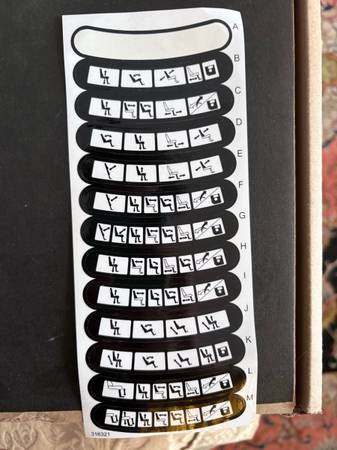 A
B
C
D
E
F
G
H
I
J
K
L
M
316321